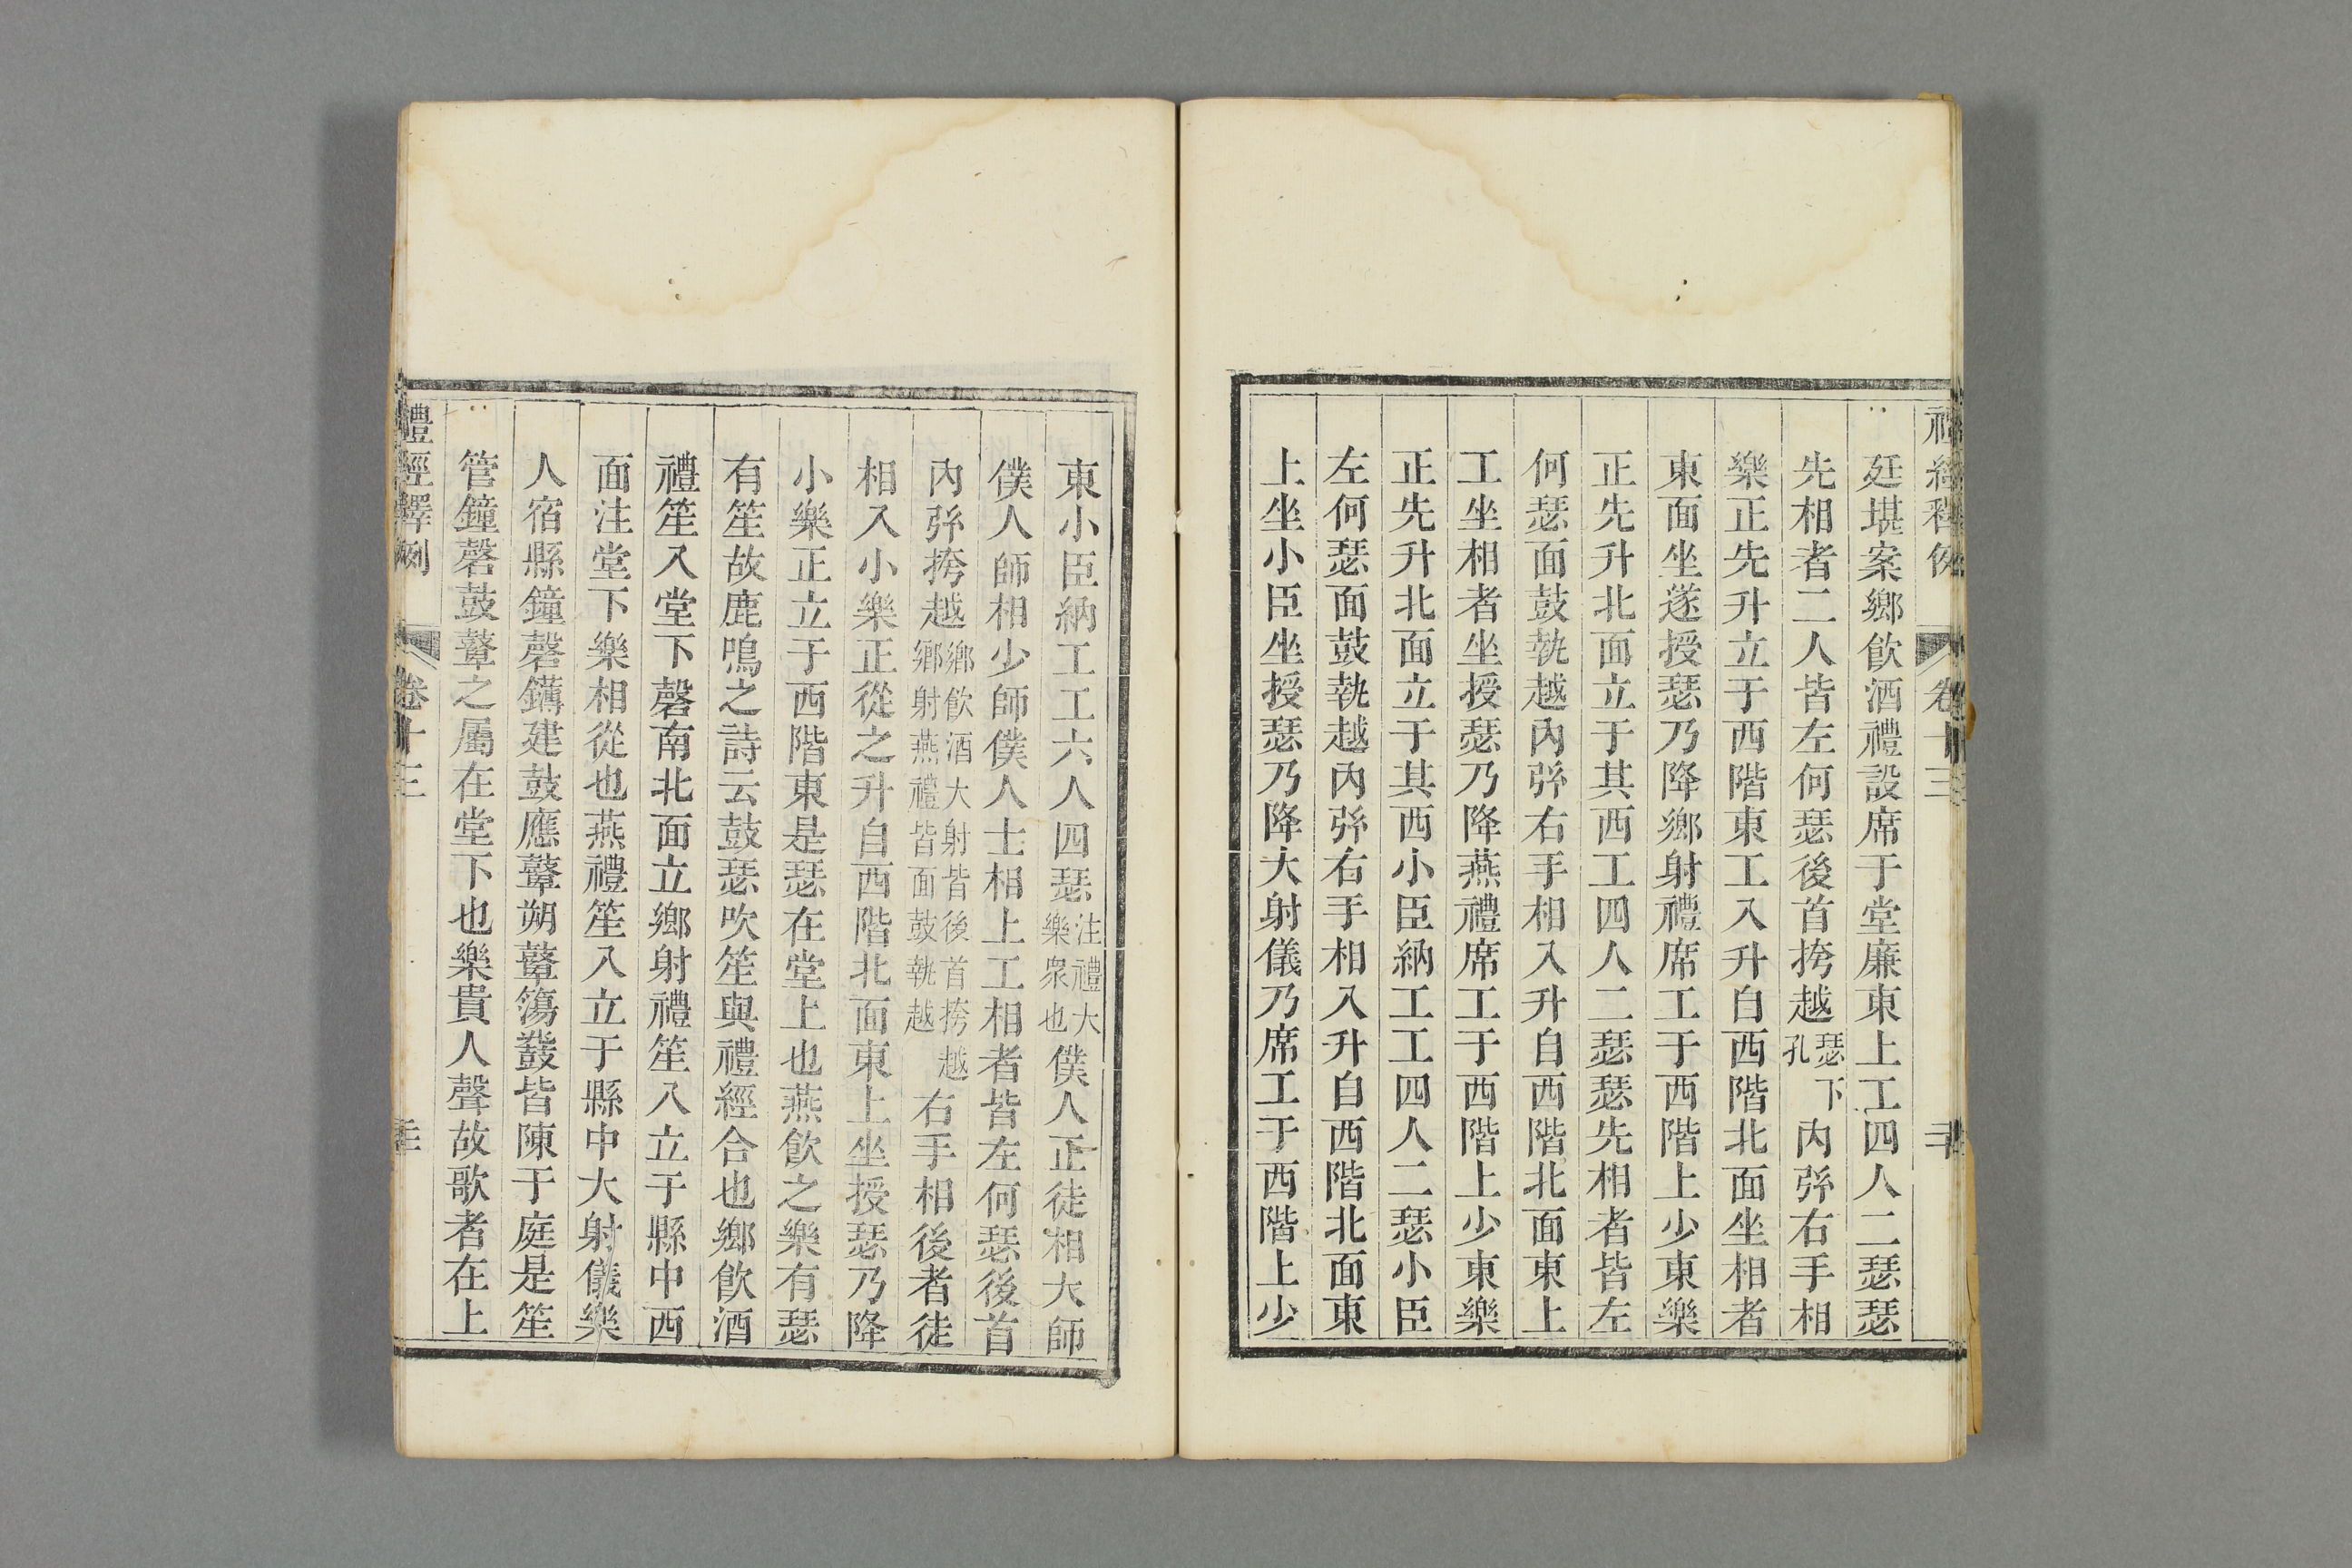 禮經釋例 卷十三
廷堪案鄉飲酒禮設席于堂廉東上工四人二瑟瑟
先相者二人皆左何瑟後首挎越瑟下孔內弶右手相
樂正先升立于西階東工入升自西階北面坐相者
東面坐遂授瑟乃降鄉射禮席工于西階上少東樂
正先升北面立于其西工四人二瑟瑟先相者皆左
何瑟面鼓執越內弶右手相入升自西階北面東上
工坐相者坐授瑟乃降燕禮席工于西階上少東樂
正先升北面立于其西小臣納工工四人二瑟小臣
左何瑟面鼓執越內弶右手相入升自西階北面東
上坐小臣坐授瑟乃降大射儀乃席工于西階上少
東小臣納工工六人四瑟注禮大樂衆也僕人正徒相大師
僕人師相少師僕人士相上工相者皆左何瑟後首
內弶挎越鄉飲酒大射皆後首挎越鄉射燕禮皆面鼓執越右手相後者徒
相入小樂正從之升自西階北面東上坐授瑟乃降
小樂正立于西階東是瑟在堂上也燕飲之樂有瑟
有笙故鹿鳴之詩云鼓瑟吹笙與禮經合也鄉飲酒
禮笙入堂下磬南北面立鄉射禮笙入立于縣中西
面注堂下樂相從也燕禮笙入立于縣中大射儀樂
人宿縣鐘磬鑮建鼓應鼙朔鼙簜鼗皆陳于庭是笙
管鐘磬鼓鼙之屬在堂下也樂貴人聲故歌者在上
禮經釋例 卷十三